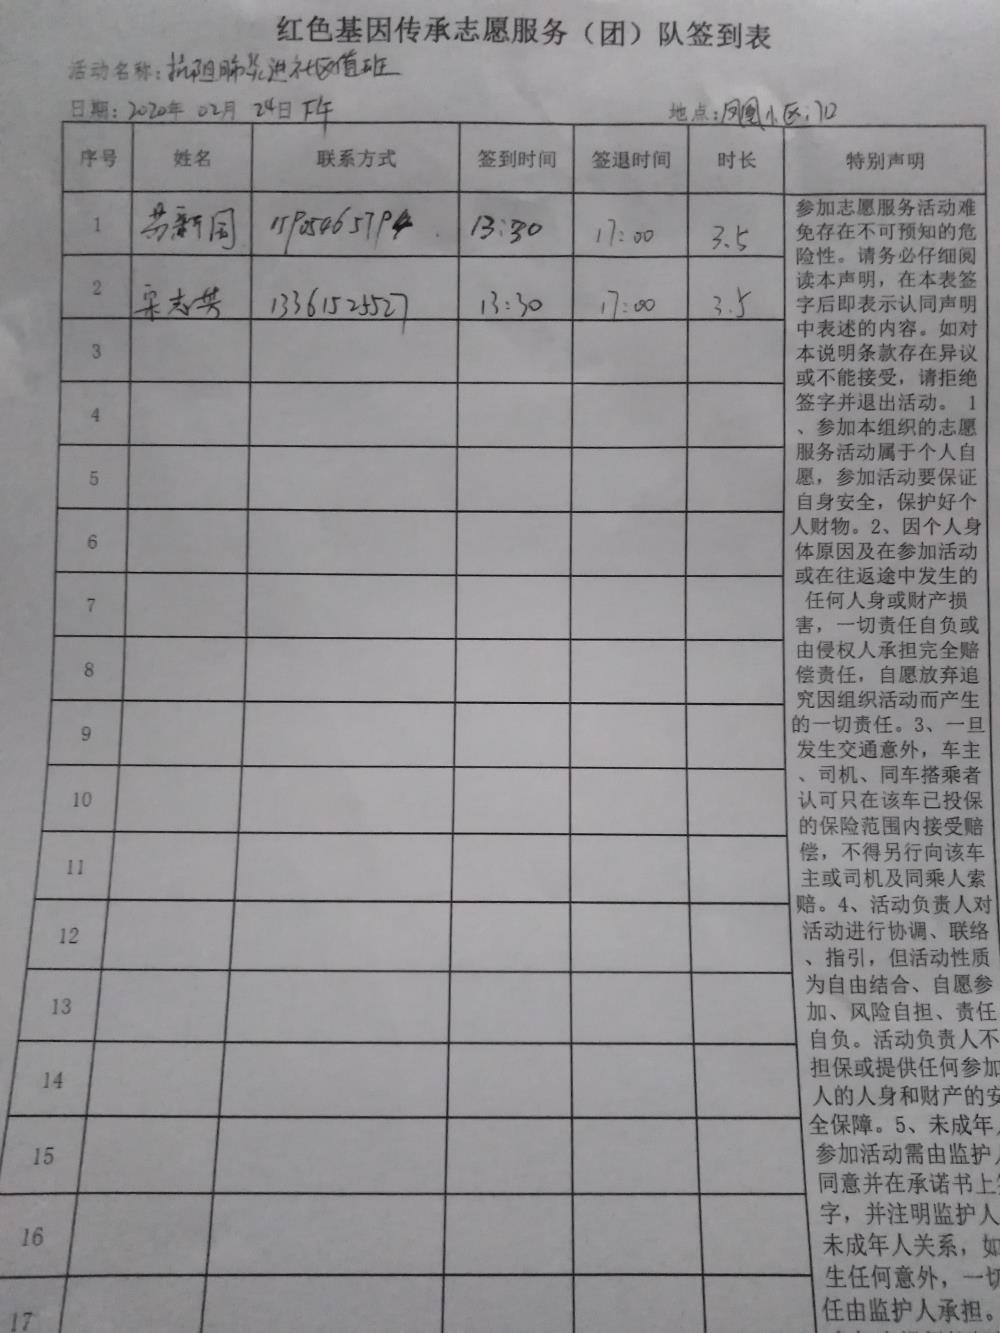 红色基因传承志愿服务（团）队签到表
活动名称：抗阻肺炎进社区值班
日期：2020年 02月 24日 下午 地点：凤凰小区门口
序号 姓名 联系方式 签到时间 签退时间 时长 特别声明
1 苏新国 15905465794 13:30 17:00 3.5
2 宋志英 13361525527 13:30 17:00 3.5
3
4
5
6
7
8
9
10
11
12
13
14
15
16
17
参加志愿服务活动难
免存在不可预知的危
险性。请务必仔细阅
读本声明，在本表签
字后即表示认同声明
中表述的内容。如对
本说明条款存在异议
或不能接受，请拒绝
签字并退出活动。 1
、参加本组织的志愿
服务活动属于个人自
愿，参加活动要保证
自身安全，保护好个
人财物。2、因个人身
体原因及在参加活动
或在往返途中发生的
任何人身或财产损
害，一切责任自负或
由侵权人承担完全赔
偿责任，自愿放弃追
究因组织活动而产生
的一切责任。3、一旦
发生交通意外，车主
、司机、同车搭乘者
认可只在该车已投保
的保险范围内接受赔
偿，不得另行向该车
主或司机及同乘人索
赔。4、活动负责人对
活动进行协调、联络
、指引，但活动性质
为自由结合、自愿参
加、风险自担、责任
自负。活动负责人不
担保或提供任何参加
人的人身和财产的安
全保障。5、未成年人
参加活动需由监护人
同意并在承诺书上签
字，并注明监护人
未成年人关系，如
生任何意外，一切
任由监护人承担。